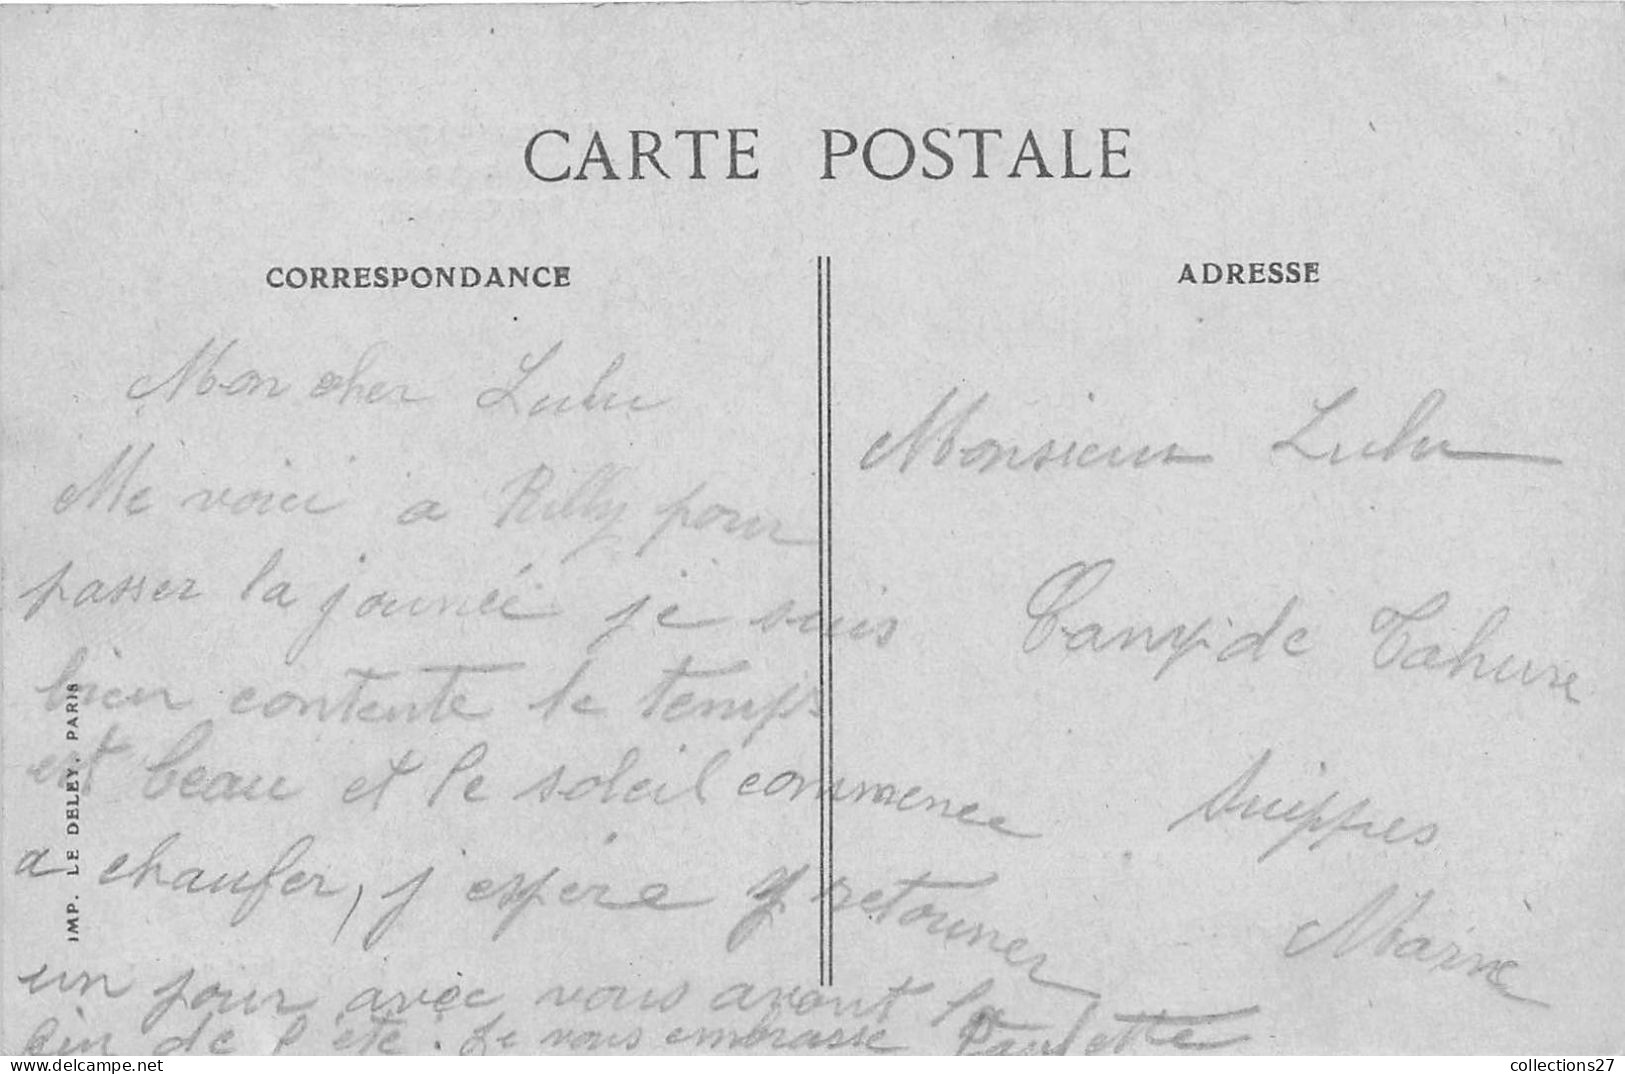 CARTE POSTALE
CORRESPONDANCE
Mon cher Lulu
Me voici a Rilly pour
passer la jounéé je suis
bien contente le temps
est beau et le soleil commence
a chaufer, j espére y retourner
un jour avec vous avant la
fin de l'été. Je vous embrasse Paulette
ADRESSE
Monsieur Lulu
Camp de Tahure
Suippes
Marne
IMP. LE DELEY, PARIS
delcampe.net
collections27